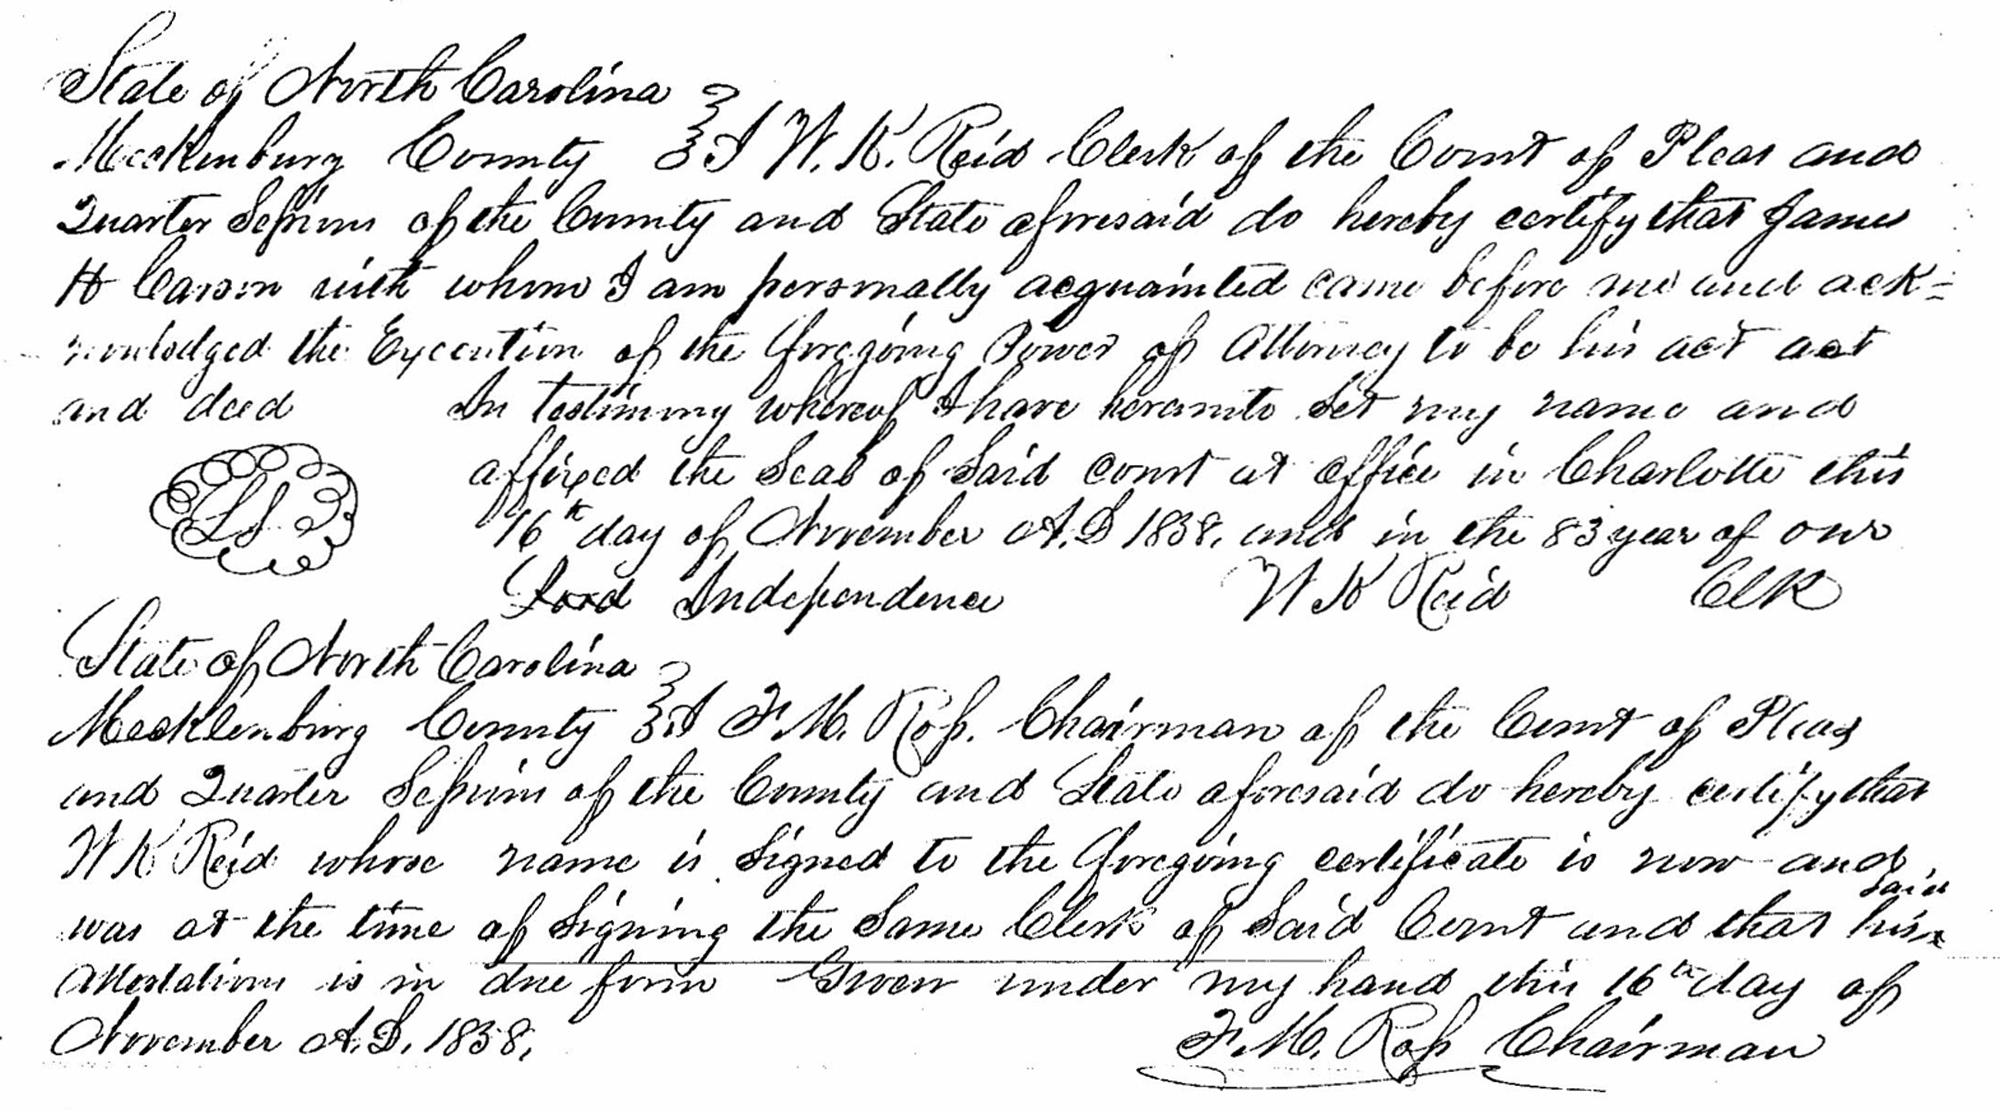 State of North Carolina
Mecklenburg County } I W. K. Reid Clerk of the Court of Pleas and
Quarter Sessions of the County and State aforesaid do hereby certify that James
H Carson with whom I am personally acquainted came before me and ack=
nowledged the Execution of the foregoing Power of Attorney to be his act act
and deed In testimony whereof I have hereunto set my name and
affixed the Seal of Said court at office in Charlotte this
LS 16th day of November A.D 1838, and in the 83 year of our
Lord Independence W K Reid Clk
State of North Carolina
Mecklenburg County } I F. M. Ross. Chairman of the Court of Pleas
and Quarter Sessions of the County and State aforesaid do hereby certify that
W K Reid whose name is signed to the foregoing certificate is now and
was at the time of signing the same Clerk of Said Court and that his said
attestation is in due form Given under my hand this 16th day of
November A.D. 1838. F. M. Ross Chairman